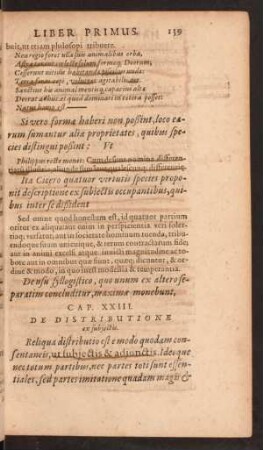 LIBER PRIMUS. 139
buit, ut etiam philosopi tribuere.
Neu regio foret ulla suis animalibus orba,
Astra tenent cœleste solum formæq; Deorum;
Cesserunt nitidis habitandæ piscibus undæ:
Terra feras cepit, volucres agitabilis aer.
Sanctius his animal mentisq; capacius altæ
Deerat adhuc, et quod dominari in cætera posset:
Natus homo est
Si vero formæ haberi non possint, loco ea-
rum sumantur aliæ proprietates, quibus spe-
cies distingui possint: Ut
Philoponi recte monet:
Ita Cicero quatuor virtutis species propo-
nit descriptione ex subjectis occupantibus, qui-
bus inter se dissident
Sed omne quod honestum est, id quatuor partium
oritur ex aliqua: aut enim in perspicientia veri soler-
tiaq; versatur; aut in societate hominum tuenda, tribu-
endoque suum unicuique, & rerum contractarum fide;
aut in animi excelsi atque invicti magnitudine ac robo-
re aut in omnium quæ fiunt, quæq; dicuntur, & or-
dine & modo, in quo inest modestia & temperantia.
De usu syllogistico, quo unum ex altero se-
paratim concluditur, maxime monebunt,
CAP. XXIII.
DE DISTRIBUTIONE
ex subjectis.
Reliqua distributio est e modo quodam con-
sentaneis, ut subjectis & adjunctis. Ideoque
nec totum partibus, nec partes toti sunt essen-
tiales, sed partes imitatione quadam magis &